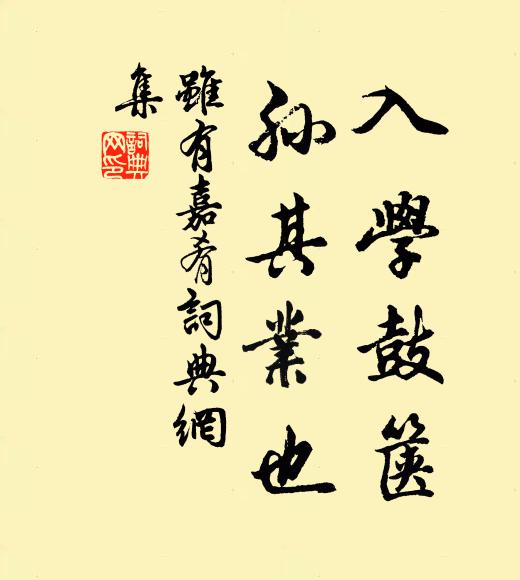 入學鼓篋
孙其業也
雖有嘉肴詞典網
集
詞典
网印